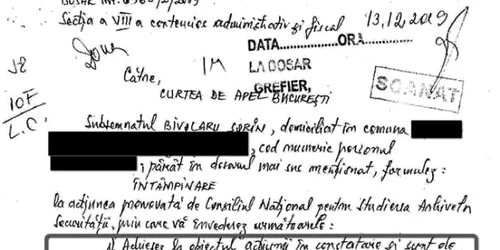 Secția a VIII a contencios administrativ și fiscal
13,12,2019
DATA..............ORA............
LA DOSAR
GREFIER,
SCANAT
Către,
CURTEA DE APEL BUCUREȘTI
18
10F
L.C.
Subsemnatul BIVOLARU SORIN, domiciliat în comuna
, cod numeric personal
, pârât în dosarul mai sus menționat, formulez:
ÎNTÂMPINARE
la acțiunea promovată de Consiliul Național pentru Studierea Arhivelor
Securității, prin care vă învederez următoarele:
1) Achiesez la obiectul acțiunii în constatare și sunt de